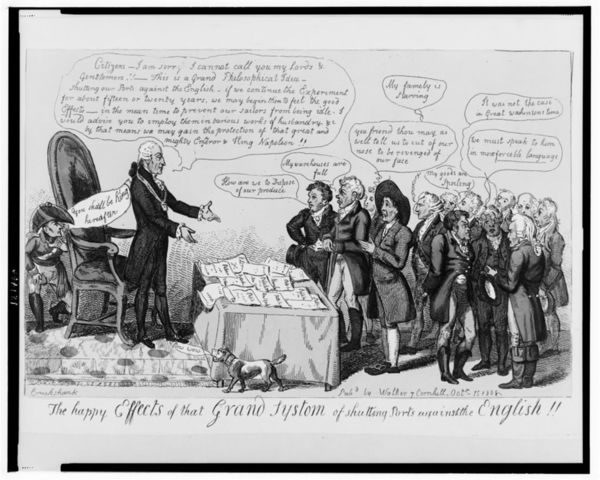 Citizens — I am sorry I cannot call you my Lords &
Gentlemen!! — This is a Grand Philosophical Idea —
shutting our Ports against the English — if we continue the Experiment
for about fifteen or twenty years, we may begin then to feel the good
Effects — in the mean time to prevent our sailors from being idle — I
would advise you to employ them in various works of husbandry &c
by that means we may gain the protection of that great and
mighty Emperor & King Napoleon!!
You shall be King
hereafter
How are we to Dispose
of our produce
My warehouses are
full
My famely is
Starving
you friend thou may as
well tell us to cut of our
nose to be revenged of
our face
My goods are
Spoiling
It was not the case
in Great washintons time
we must speak to him
in more forcible language
Cruikshank
Pub'd by Walker 7 Cornhill Oct 15 1808
The happy Effects of that Grand System of shutting Ports against the English!!